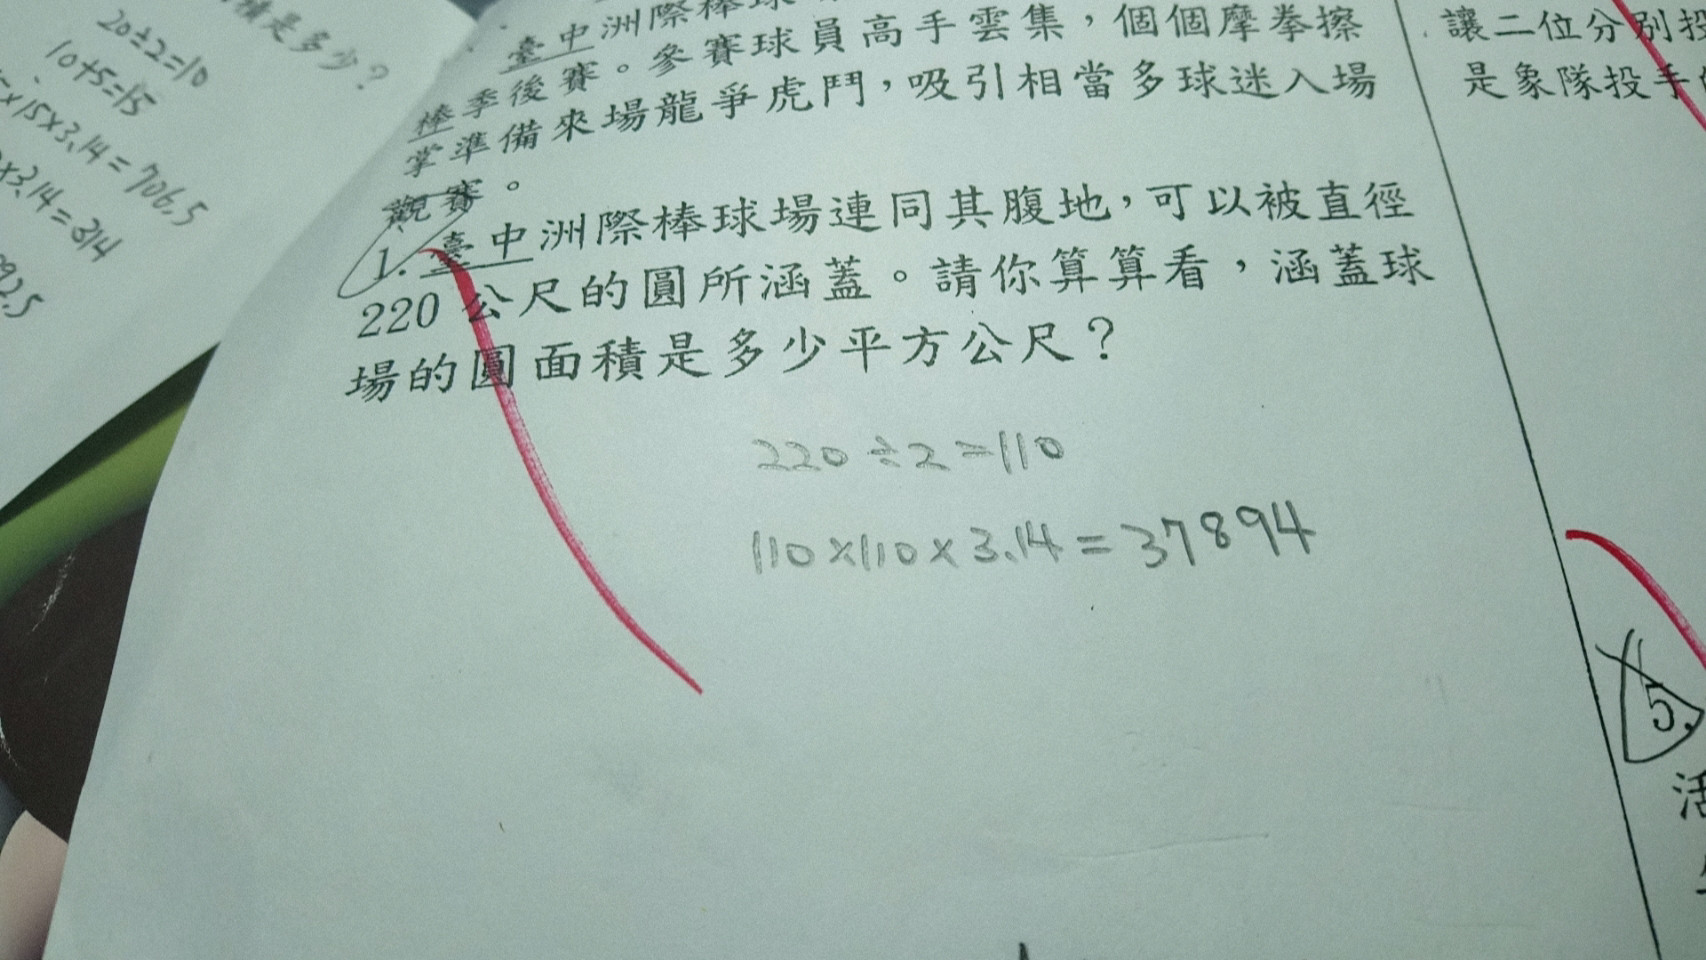 積是多少？
20÷2=10
10+5=15
×15×3.14=706.5
×3.14=314
92.5
臺中洲際棒球
棒季後賽。參賽球員高手雲集，個個摩拳擦
掌準備來場龍爭虎鬥，吸引相當多球迷入場
觀賽。
1.臺中洲際棒球場連同其腹地，可以被直徑
220公尺的圓所涵蓋。請你算算看，涵蓋球
場的圓面積是多少平方公尺？
220÷2=110
110×110×3.14=37894
讓二位分別投
是象隊投手
5.
活